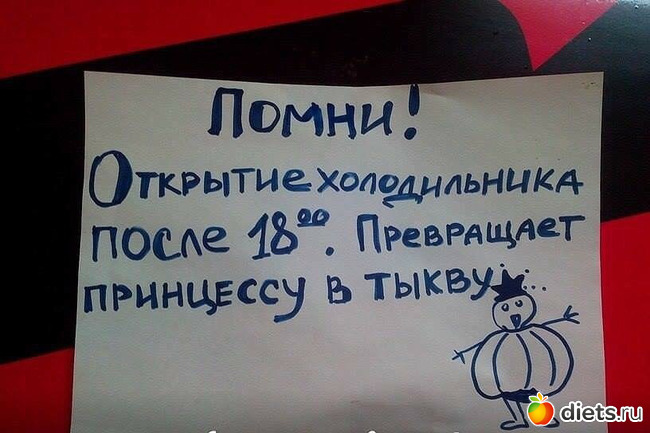 Помни!
Открытие холодильника
после 18⁰⁰. Превращает
принцессу в тыкву...
diets.ru